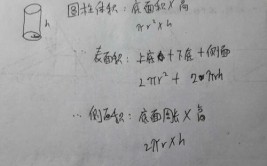 h
圆柱体积：底面积×高
πr²×h
∴ 表面积：上底+下底+侧面
2πr²+2πrh
∵ 侧面积：底面周长×高
2πr×h